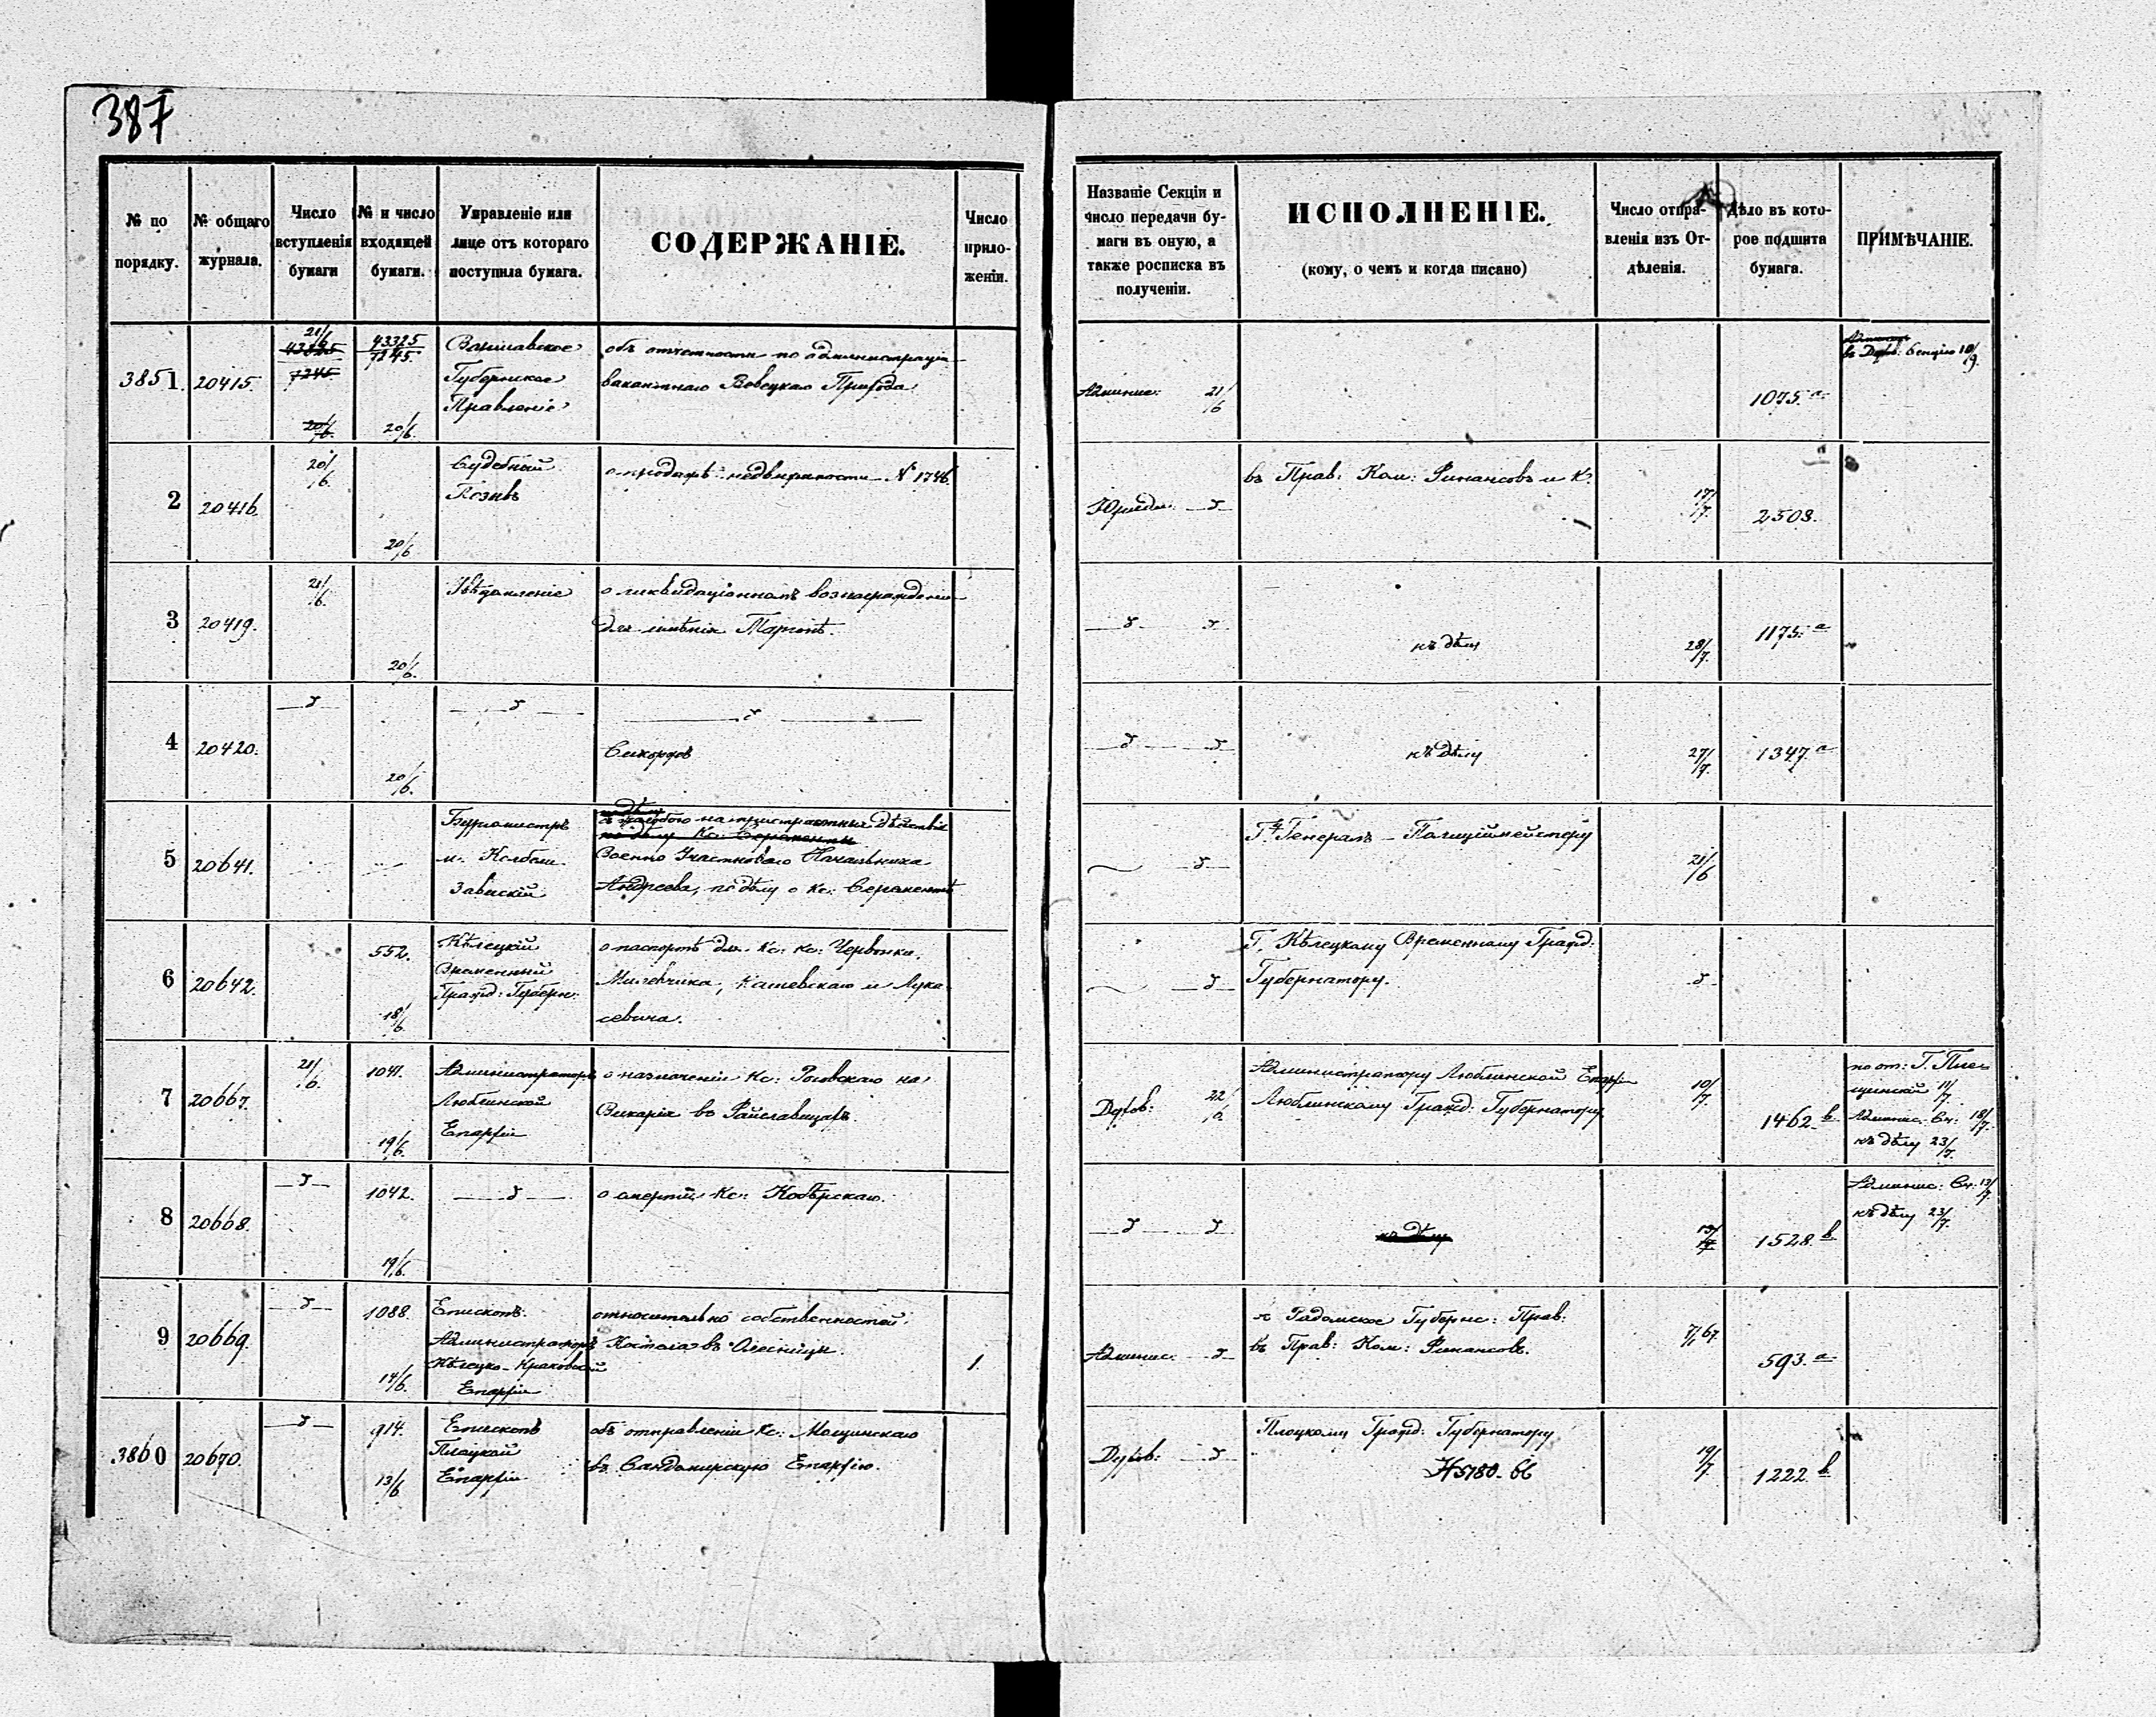 387
№ по порядку.
№ общаго журнала.
Число вступленія бумаги
№ и число входящей бумаги.
Управленіе или лице отъ котораго поступила бумага.
СОДЕРЖАНІЕ.
Число приложеніи.
Названіе Секціи и число передачи бумаги въ оную, а также росписка въ полученіи.
ИСПОЛНЕНІЕ.
(кому, о чемъ и когда писано)
Число отправленія изъ Отдѣленія.
Дѣло въ которое подшита бумага.
ПРИМѢЧАНІЕ.
3851
20415.
21/6
43325
7245
20/6
43325
7245.
20/6.
Варшавское
Губернское
Правленіе
объ отчетности по администраціи
вакантнаго
Админис: 21/6
1075. а
въ Духов: Секцію 10/9.
2
20416.
20/6.
20/6
Судебный
Позывъ
о продажѣ недвижимости № 1746
Юридич. —„—
въ Прав: Ком: Финансовъ и К.
17/7.
2503.
3
20419.
21/6.
20/6.
Увѣдомленіе
о ликвидаціонномъ вознагражденіи
для имѣнія
—„— —„—
къ дѣлу
28/7.
1175. а
4
20420.
—„—
20/6.
—„—
—„—
—„— —„—
къ дѣлу
27/7.
1347. а
5
20641.
Бурмистръ
м.
Военно Участковаго Начальника
Андреева, по дѣлу о Кс:
—„—
Г. Генералъ-Полиціймейстеру
21/6
6
20642.
552.
18/6.
Кѣлецкій
Временный
Гражд: Губерн:
о паспортѣ для Кс: Кс: Червонка,
Милевчика, Кашевскаго и Лука-
севича.
—„—
Г. Кѣлецкому Временному Гражд:
Губернатору.
—„—
7
20667.
21/6.
1041.
19/6.
Администраторъ
Люблинской
Епархіи
о назначеніи Кс: Роговскаго на
Викарія въ
Духов: 22/6.
Администратору Люблинской Епархіи
Люблинскому Гражд: Губернатору
10/7.
1462. в.
по от: Г.
11/7.
Админис. Ск: 18/7.
къ дѣлу 23/7.
8
20668.
—„—
1042.
19/6.
—„—
о смерти Кс: Кобѣрскаго.
—„— —„—
къ дѣлу
13/7
1528. в.
Админис: Ск: 13/7.
къ дѣлу 23/7.
9
20669.
—„—
1088.
14/6.
Епископъ
Администраторъ
Кѣлецко-Краковской
Епархіи
относительно собственностей
Костела въ Олесницы.
1.
Админис. —„—
въ Радомское Губернс: Прав:
въ Прав: Ком: Финансовъ.
7/1 67.
593. а
3860
20670.
—„—
914.
13/6
Епископъ
Плоцкой
Епархіи
объ отправленіи Кс: Мощинскаго
въ Сандомирскую Епархію.
Духов: —„—
Плоцкому Гражд: Губернатору
№ 5780-66
19/7.
1222. в.